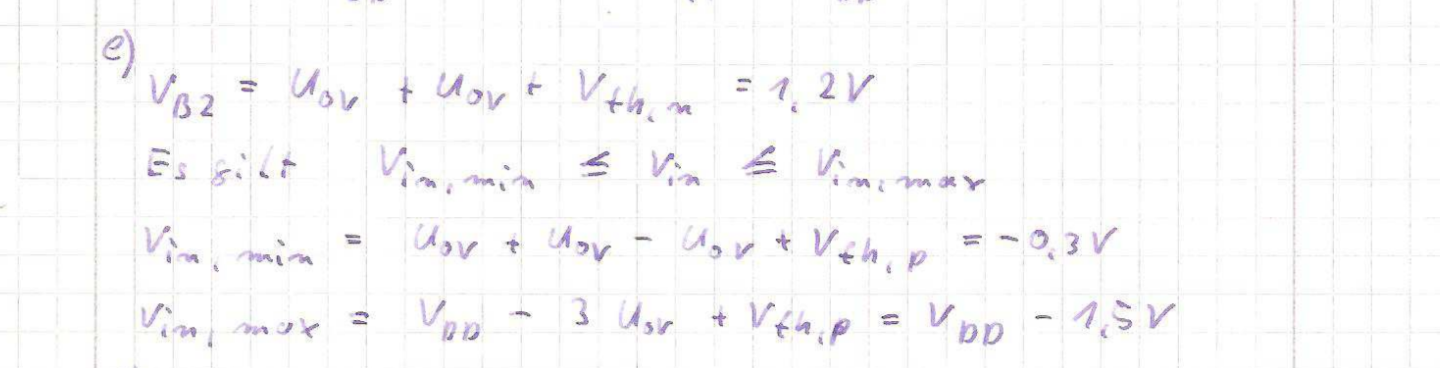 e)
V_B2 = U_ov + U_ov + V_th,n = 1,2V
Es gilt V_in,min ≤ V_in ≤ V_in,max
V_in,min = U_ov + U_ov - U_ov + V_th,p = -0,3V
V_in,max = V_DD - 3 U_ov + V_th,p = V_DD - 1,5V